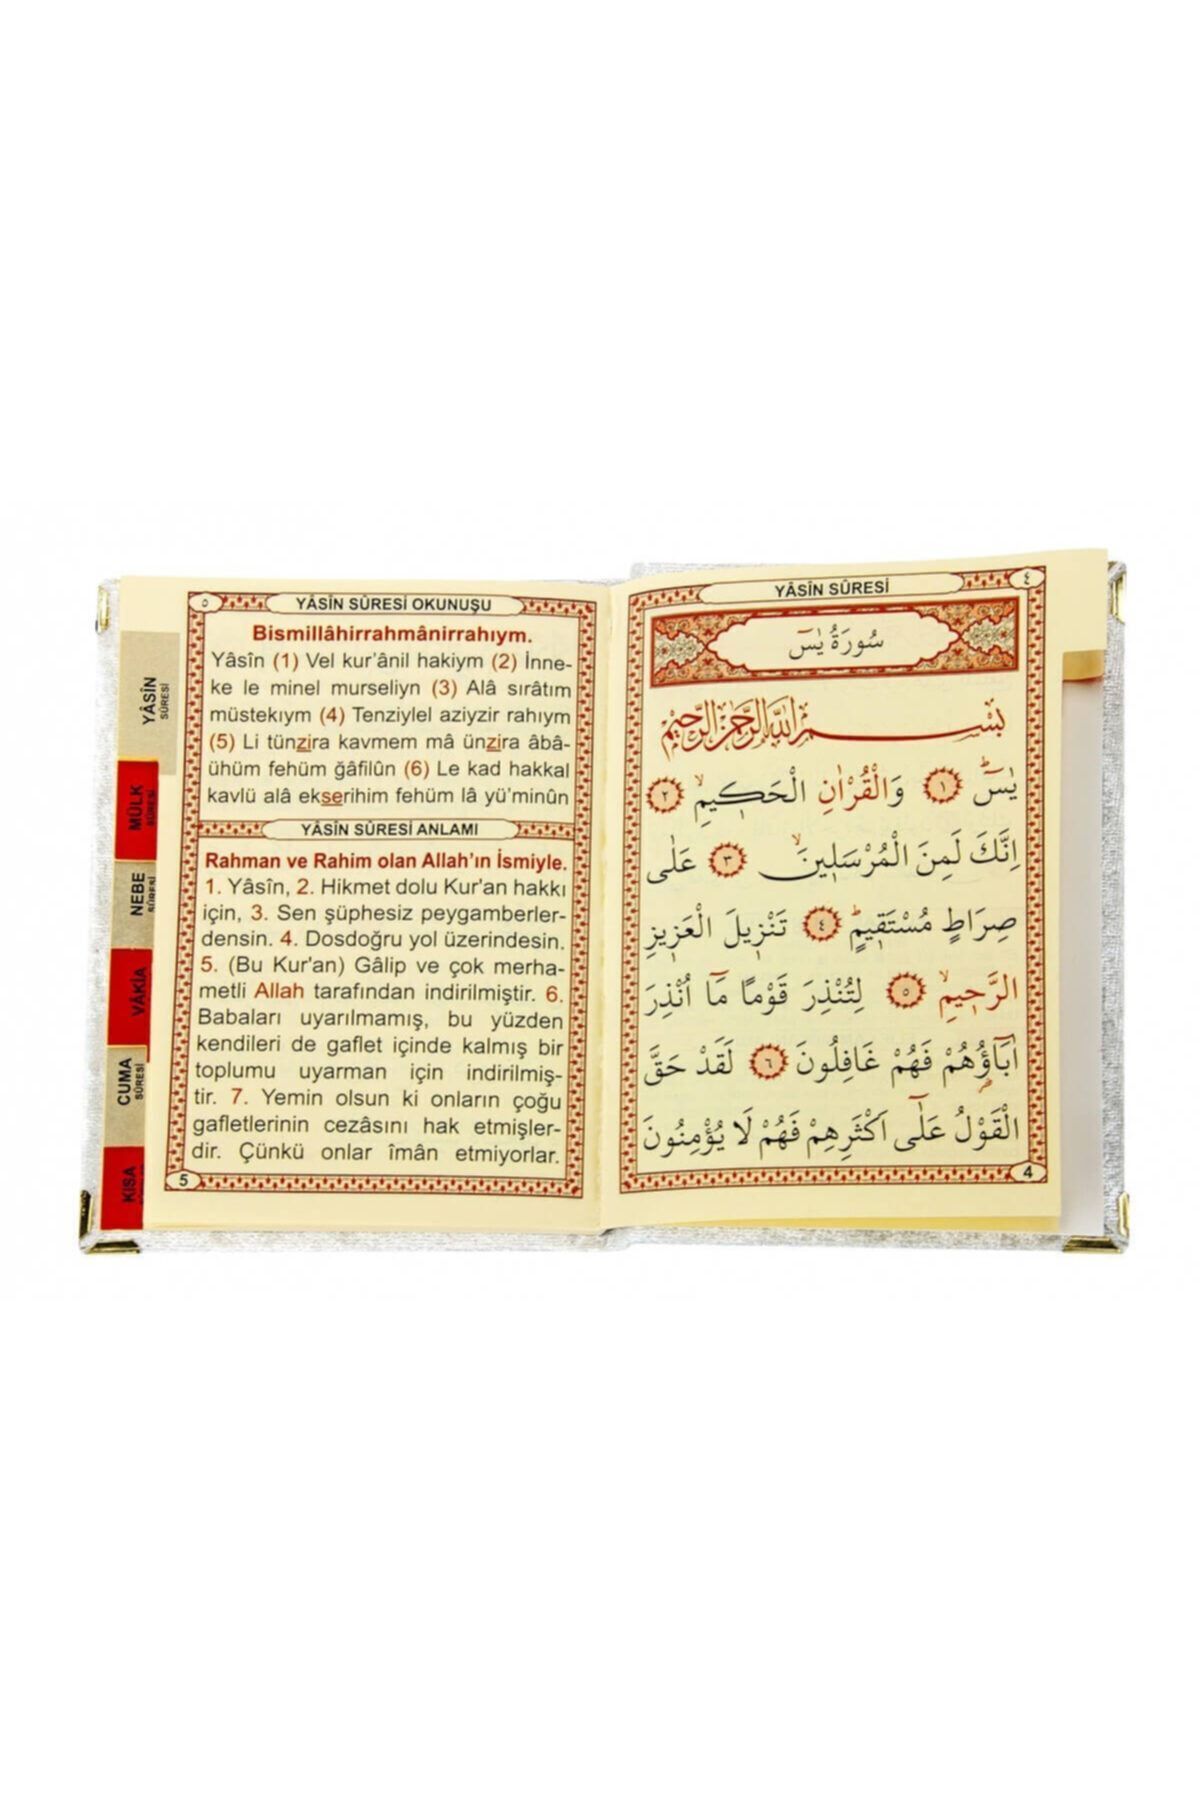 ٥
YÂSÎN SÛRESİ OKUNUŞU
Bismillâhirrahmânirrahıym.
Yâsîn (1) Vel kur'ânil hakiym (2) İnne-
ke le minel murseliyn (3) Alâ sırâtım
müstekıym (4) Tenziylel aziyzir rahıym
(5) Li tünzira kavmem mâ ünzira âbâ-
ühüm fehüm ğâfilûn (6) Le kad hakkal
kavlü alâ ekserihim fehüm lâ yü'minûn
YÂSÎN SÛRESİ ANLAMI
Rahman ve Rahim olan Allah'ın İsmiyle.
1. Yâsîn, 2. Hikmet dolu Kur'an hakkı
için, 3. Sen şüphesiz peygamberler-
densin. 4. Dosdoğru yol üzerindesin.
5. (Bu Kur'an) Gâlip ve çok merha-
metli Allah tarafından indirilmiştir. 6.
Babaları uyarılmamış, bu yüzden
kendileri de gaflet içinde kalmış bir
toplumu uyarman için indirilmiş-
tir. 7. Yemin olsun ki onların çoğu
gafletlerinin cezasını hak etmişler-
dir. Çünkü onlar îmân etmiyorlar.
5
YÂSÎN
SÛRESİ
MÜLK
SÛRESİ
NEBE
SÛRESİ
VÂKIA
CUMA
SÛRESİ
KISA
YÂSÎN SÛRESİ
٤
سُورَةُ يٰسٓ
بِسْمِ اللّٰهِ الرَّحْمٰنِ الرَّحِيمِ
يٰسٓ ۚ ﴿١﴾ وَالْقُرْاٰنِ الْحَكِيمِ ۙ ﴿٢﴾
اِنَّكَ لَمِنَ الْمُرْسَلِينَ ۙ ﴿٣﴾ عَلٰى
صِرَاطٍ مُسْتَقِيمٍ ۜ ﴿٤﴾ تَنْزِيلَ الْعَزِيزِ
الرَّحِيمِ ۙ ﴿٥﴾ لِتُنْذِرَ قَوْمًا مَٓا اُنْذِرَ
اٰبَٓاؤُ۬هُمْ فَهُمْ غَافِلُونَ ﴿٦﴾ لَقَدْ حَقَّ
الْقَوْلُ عَلٰٓى اَكْثَرِهِمْ فَهُمْ لَا يُؤْمِنُونَ
4